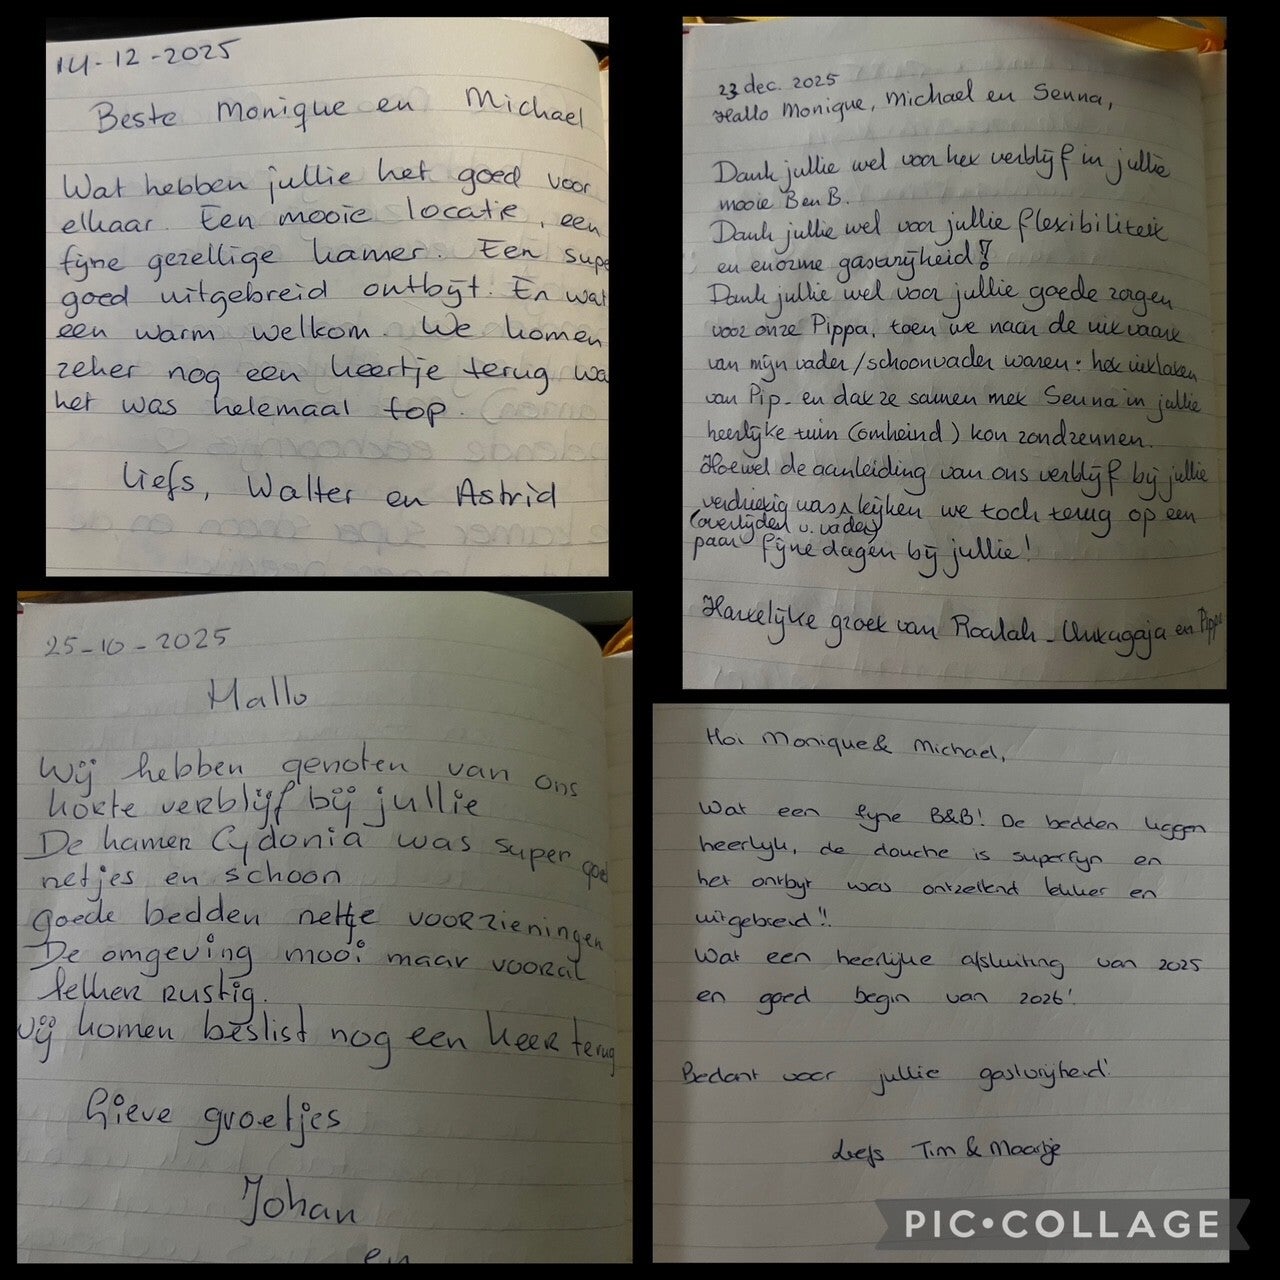 14-12-2025
Beste Monique en Michael
Wat hebben jullie het goed voor
elkaar. Een mooie locatie, een
fijne gezellige kamer. Een supe
goed uitgebreid ontbijt. En wat
een warm welkom. We komen
zeker nog een keertje terug wa
het was helemaal top.
Liefs, Walter en Astrid
23 dec. 2025
Hallo Monique, Michael en Senna,
Dank jullie wel voor het verblijf in jullie
mooie BenB.
Dank jullie wel voor jullie flexibiliteit
en enorme gastvrijheid!
Dank jullie wel voor jullie goede zorgen
voor onze Pippa, toen we naar de uitvaart
van mijn vader/schoonvader waren: het uitlaten
van Pip - en dat ze samen met Senna in jullie
heerlijke tuin (omheind) kon rondrennen.
Hoewel de aanleiding van ons verblijf bij jullie
verdrietig was kijken we toch terug op een
(overlijden v. vader)
paar fijne dagen bij jullie!
Hartelijke groet van en Pippa
25-10-2025
Hallo
Wij hebben genoten van ons
korte verblijf bij jullie
De kamer Cydonia was super goed
netjes en schoon
goede bedden nette voorzieningen
De omgeving mooi maar vooral
lekker rustig.
wij komen beslist nog een keer terug
Lieve groetjes
Johan
en
Hoi Monique & Michael,
Wat een fijne B&B! De bedden liggen
heerlijk, de douche is superfijn en
het ontbijt was ontzettend lekker en
uitgebreid!!
Wat een heerlijke afsluiting van 2025
en goed begin van 2026!
Bedankt voor jullie gastvrijheid!
Liefs Tim & Maartje
PIC•COLLAGE